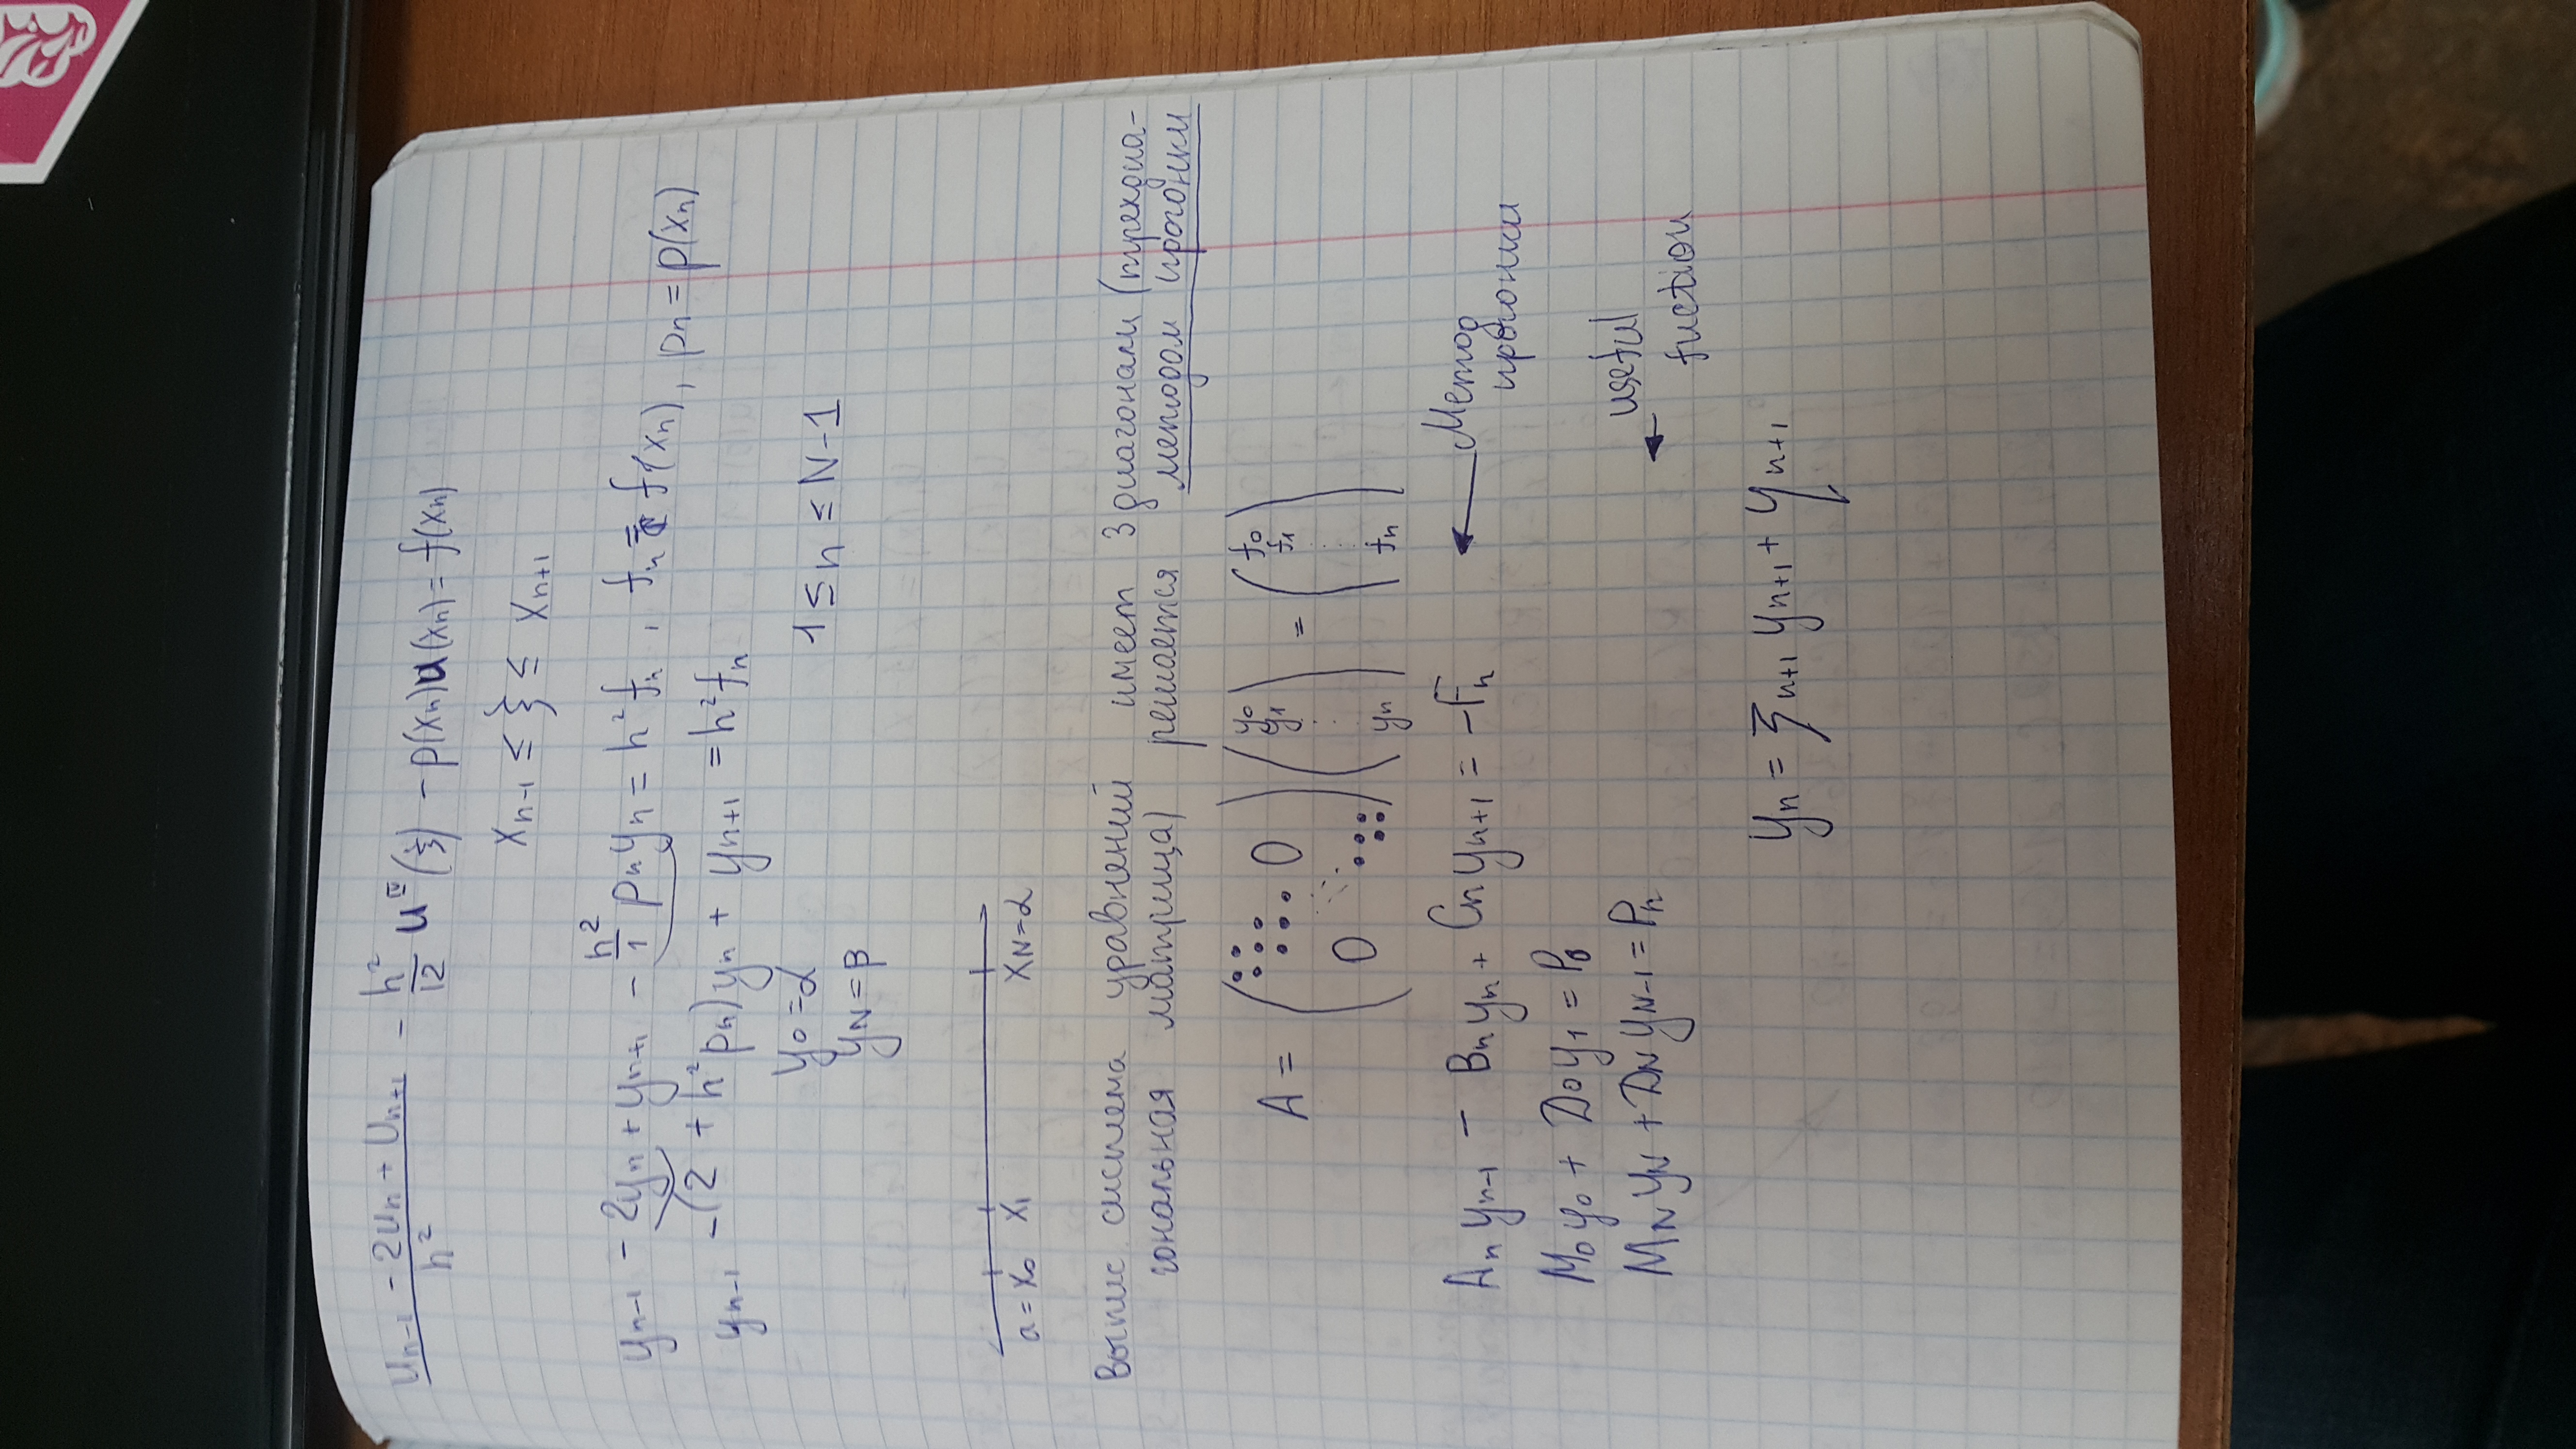 (u_{n-1} - 2u_n + u_{n+1}) / h² - h²/12 u^{IV}(ξ) - p(x_n)u(x_n) = f(x_n)
x_{n-1} ≤ ξ ≤ x_{n+1}
y_{n-1} - 2y_n + y_{n+1} - h²/1 p_n y_n = h² f_n , f_n = f(x_n), p_n = p(x_n)
y_{n-1} - (2 + h² p_n) y_n + y_{n+1} = h² f_n
y_0 = α 1 ≤ n ≤ N-1
y_N = β
a = x_0 x_1 x_N = α
Выпис система уравнений имеет 3 диагонали (трехдиа-
гональная матрица) решается методом прогонки
A = ( 0 0 ) ( y_0 y_1 ⋮ y_n ) = ( f_0 f_1 ⋮ f_n )
A_n y_{n-1} - B_n y_n + C_n y_{n+1} = -F_n ← Метод
прогонки
M_0 y_0 + D_0 y_1 = P_0
M_N y_N + D_N y_{N-1} = P_n ← useful
fuction
y_n = ξ_{n+1} y_{n+1} + η_{n+1}